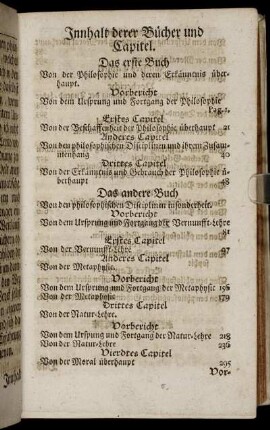 Innhalt derer Bücher und
Capitel.
Das erste Buch
Von der Philosophie und deren Erkänntnis über-
haupt.
Vorbericht
Von dem Ursprung und Fortgang der Philosophie
Pag. 1.
Erstes Capitel
Von der Beschaffenheit der Philosophie überhaupt 21
Anderes Capitel
Von den philosophischen Disciplinen und ihrem Zusam-
menhang 40
Drittes Capitel
Von der Erkäntnis und Gebrauch der Philosophie ü-
berhaupt 58
Das andere Buch
Von den philosophischen Disciplinen insonderheit.
Vorbericht
Von dem Ursprung und Fortgang der Vernunfft-Lehre
81
Erstes Capitel
Von der Vernunfft-Lehre 97
Anderes Capitel
Von der Metaphysic.
Vorbericht
Von dem Ursprung und Fortgang der Metaphysic 156
Von der Metaphysic 179
Drittes Capitel
Von der Natur-Lehre.
Vorbericht
Von dem Ursprung und Fortgang der Natur-Lehre 218
Von der Natur-Lehre 236
Vierdtes Capitel
Von der Moral überhaupt 295
Vor-